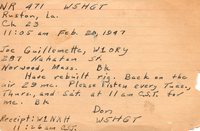 NR 471 W5HGT
Ruston, La.
Ck 23
11:05 am Feb. 20, 1947
Joe Guillemette, W1ORY
287 Nahatan St.
Norwood, Mass. Bk
Have rebuilt rig. Back on the
air 29 mc. Please listen every Tues,
Thurs, and Sat. at 11 a.m. C.S.T. for
me. Bk
Don
Receipt: W1NAH W5HGT
11:46 am C.S.T.